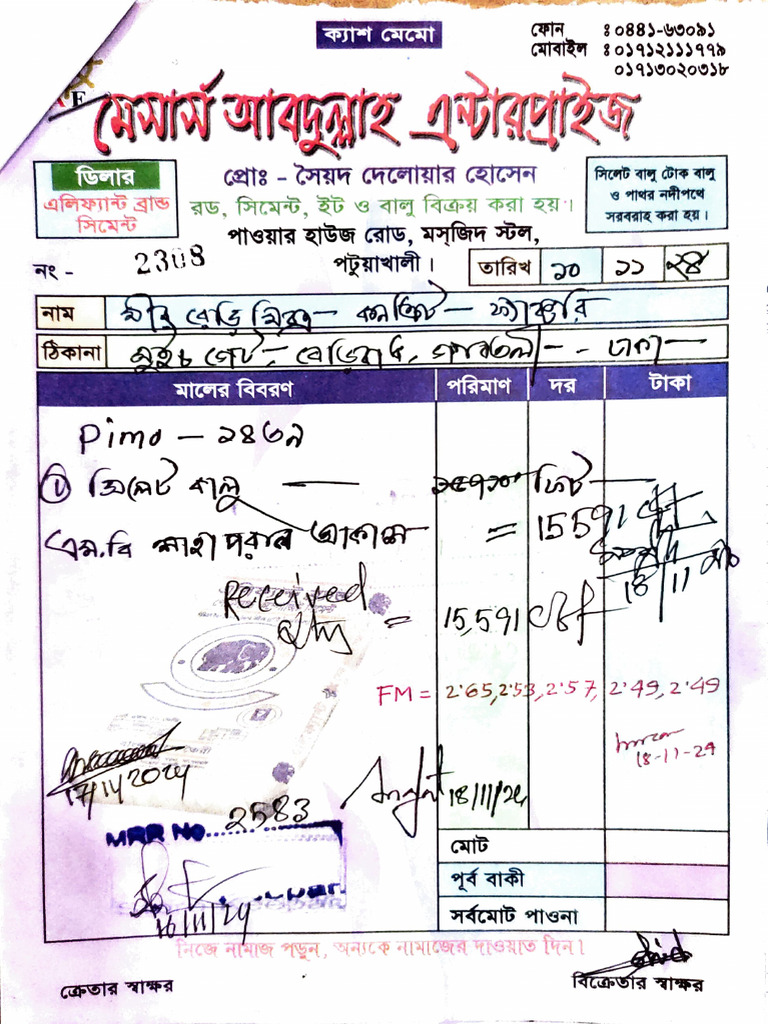 ক্যাশ মেমো
ফোন : ০৪৪১-৬৩০৯১
মোবাইল : ০১৭১২১১১৭৭৯
০১৭১৩০২০৩১৮
মেসার্স আবদুল্লাহ এন্টারপ্রাইজ
ডিলার
এলিফ্যান্ট ব্রান্ড
সিমেন্ট
প্রোঃ - সৈয়দ দেলোয়ার হোসেন
রড, সিমেন্ট, ইট ও বালু বিক্রয় করা হয়।
পাওয়ার হাউজ রোড, মস্জিদ স্টল,
পটুয়াখালী।
সিলেট বালু টোক বালু
ও পাথর নদীপথে
সরবরাহ করা হয়।
নং - 2308
তারিখ ১০ ১১ ২৪
নাম মীর রেডি মিক্স - কনক্রিট - ফ্যাক্টরি
ঠিকানা গেট, গাবতলী - ঢাকা
মালের বিবরণ পরিমাণ দর টাকা
Pimo - ১৪৩৯
① সিলেট বালু — ফিট
= 15591
এম.বি শাহ পরান
18/11
Received
Qty = 15,591 cft
FM = 2'65, 2'53, 2'57, 2'49, 2'49
18-11-24
17/11/2024
18/11/24
MRR NO. 2583
16/11/24
মোট
পূর্ব বাকী
সর্বমোট পাওনা
নিজে নামাজ পড়ুন, অন্যকে নামাজের দাওয়াত দিন।
ক্রেতার স্বাক্ষর
বিক্রেতার স্বাক্ষর